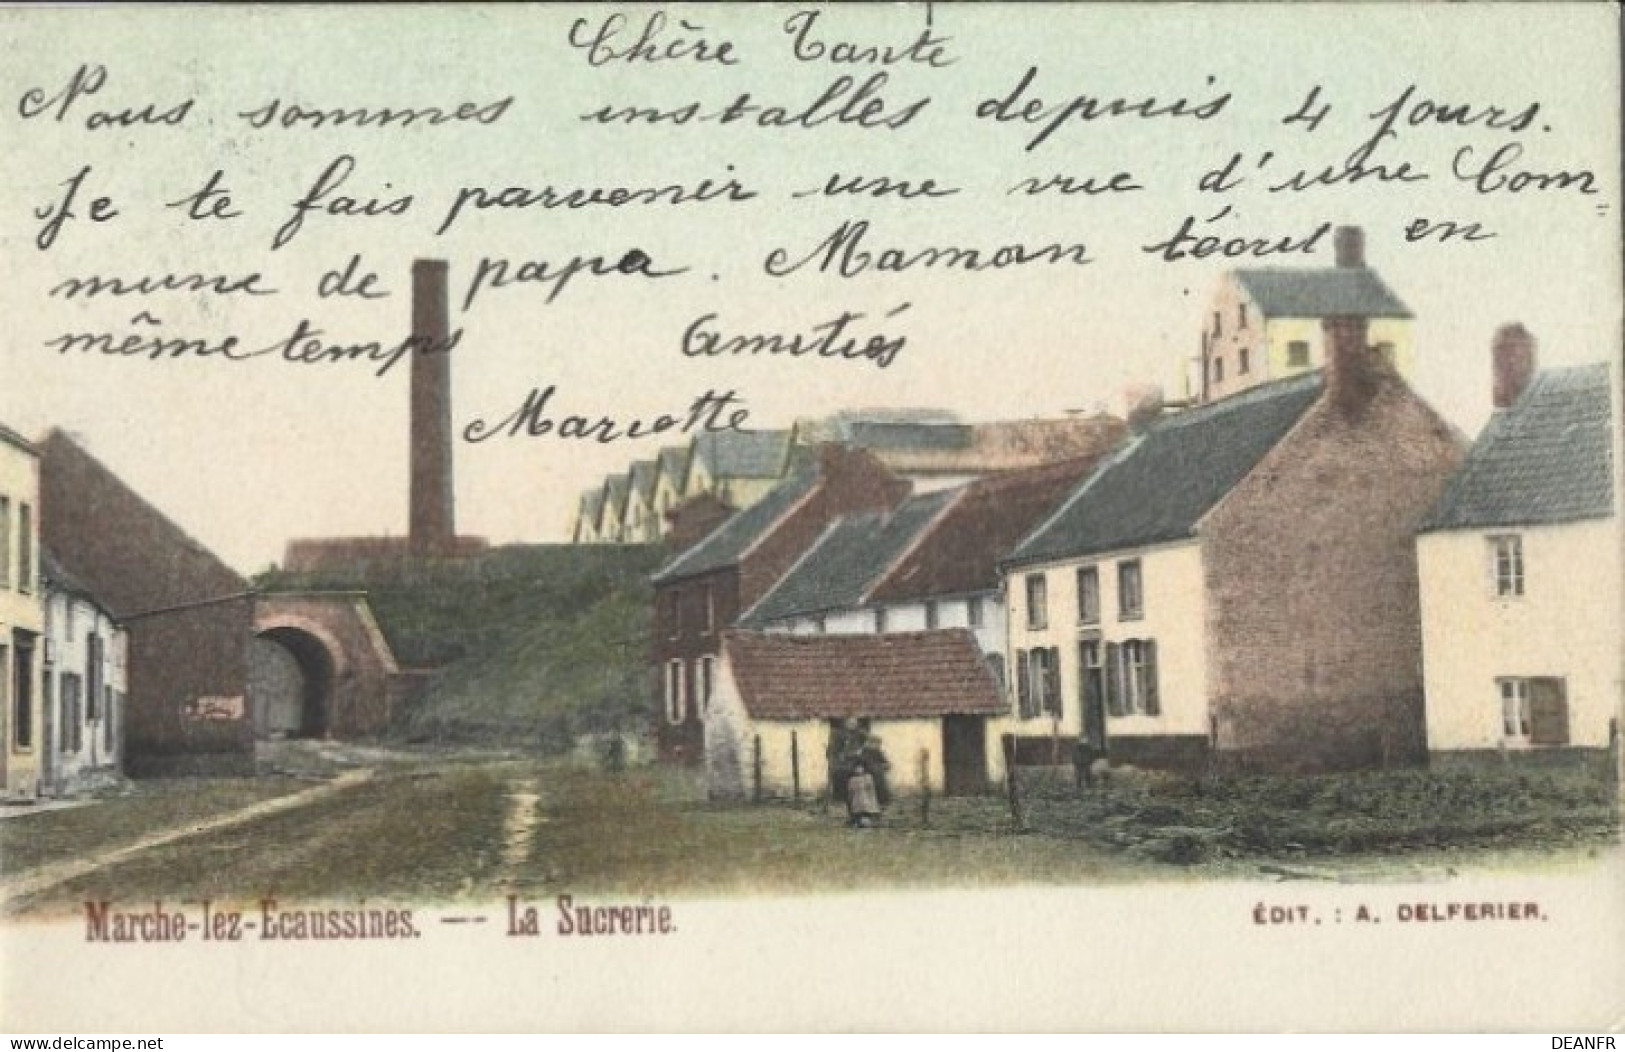 Chère Tante
Nous sommes installes depuis 4 jours.
Je te fais parvenir une vue d'une Com=
mune de papa. Maman técrit en
même temps Amitiés
Mariette
Marche-lez-Ecaussines. — La Sucrerie.
ÉDIT. : A. DELFERIER.
www.delcampe.net
DEANFR